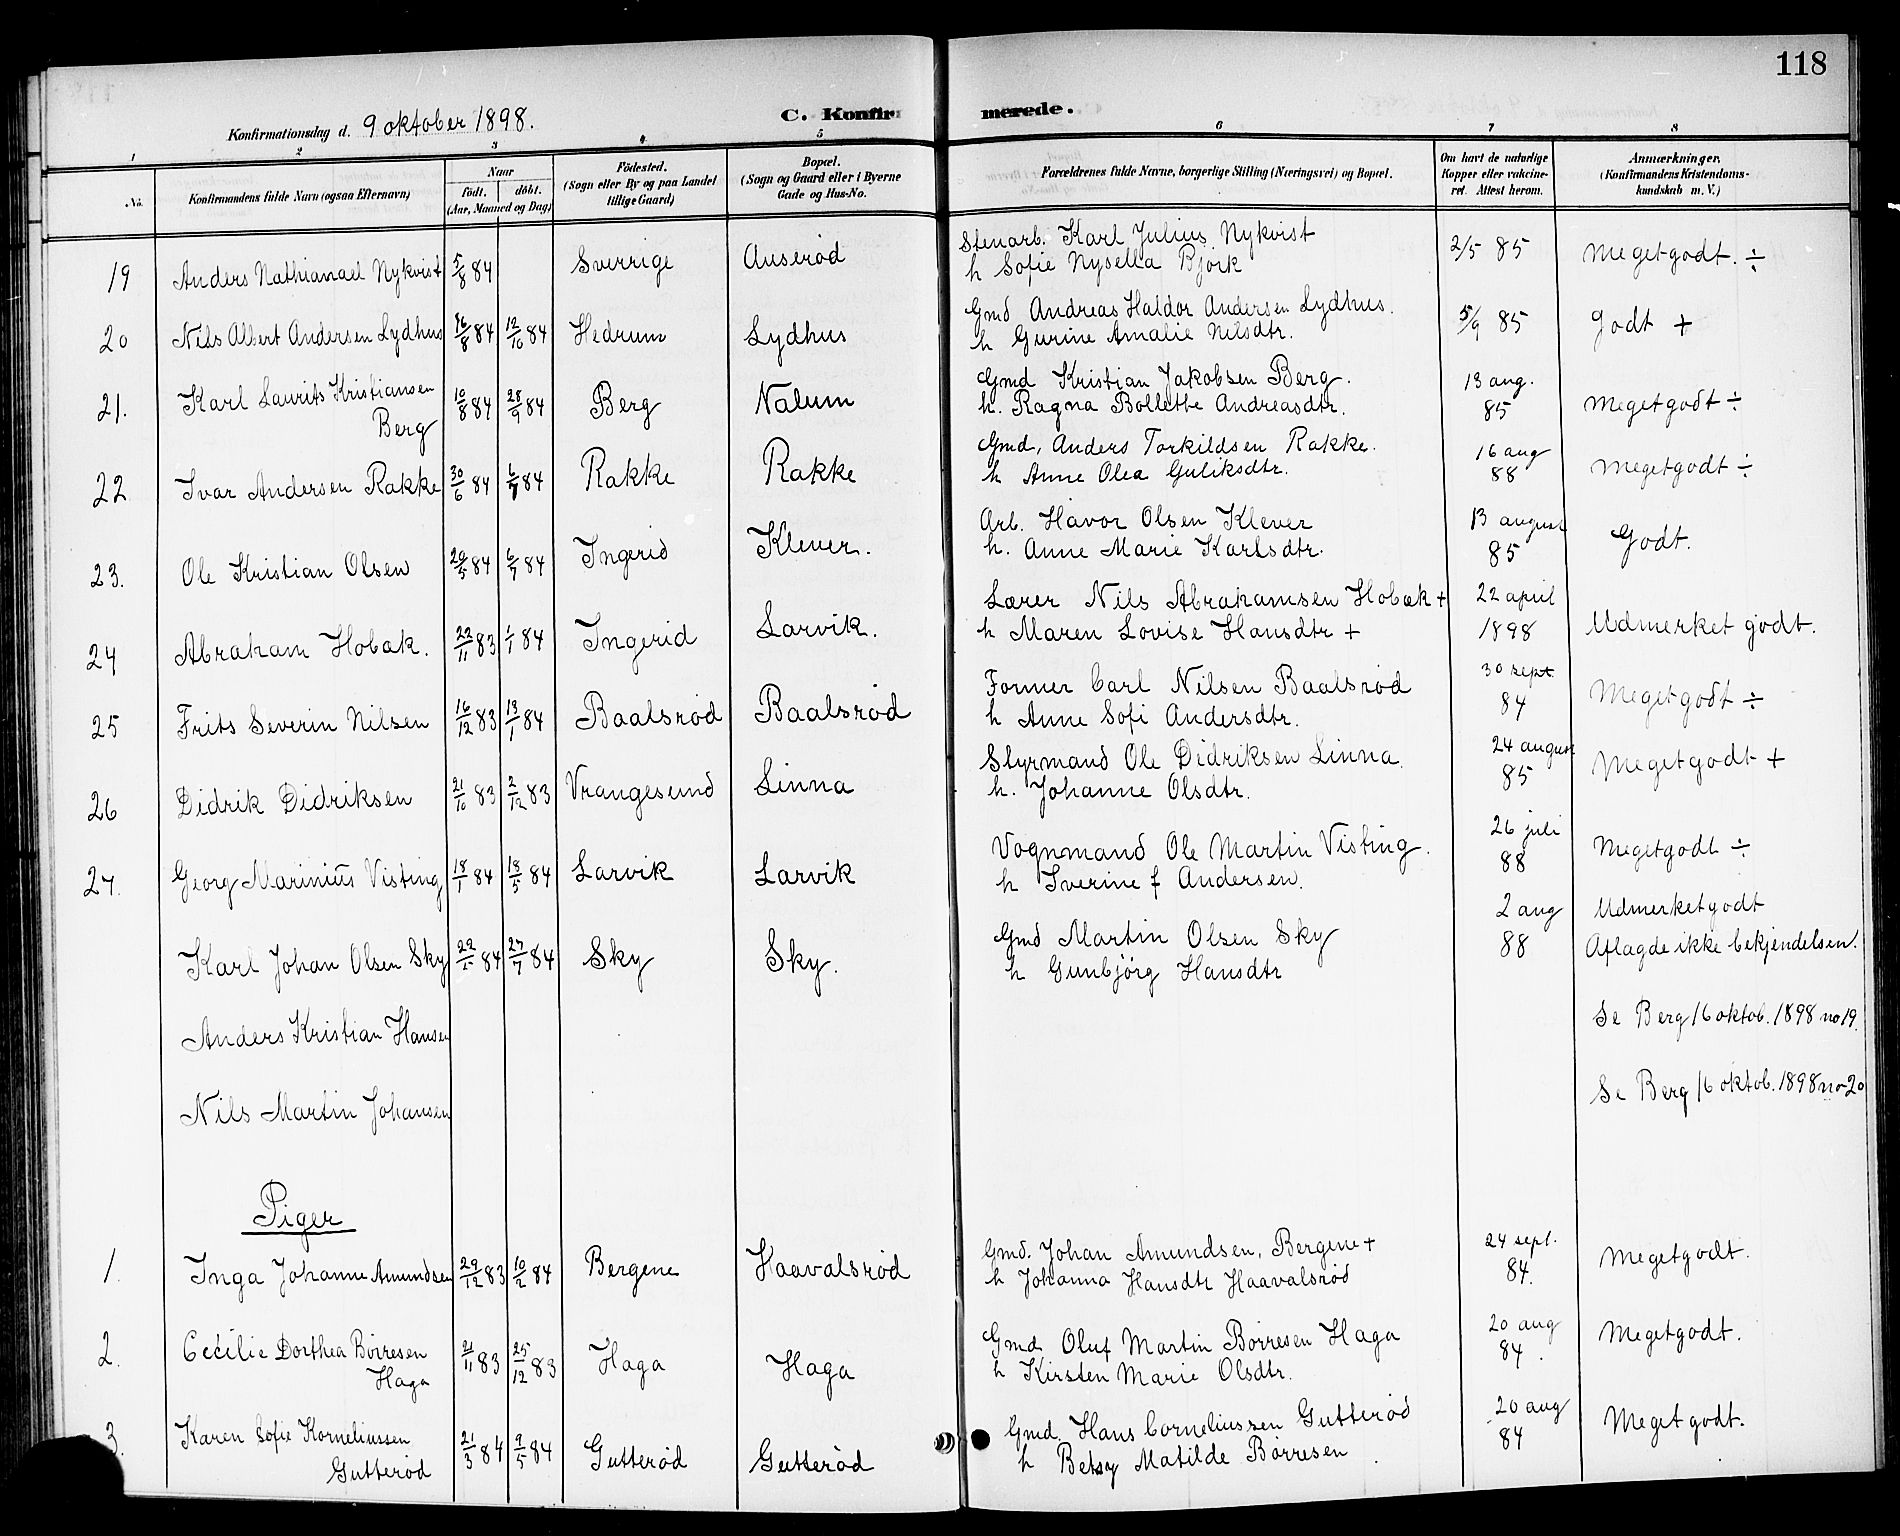 118
Konfirmationsdag d. 9 oktober 1898.
C. Konfirmerede.
1 2 3 4 5 6 7 8
No. Konfirmandens fulde Navn (ogsaa Efternavn) Naar født. døbt. (Aar, Maaned og Dag) Fødested. (Sogn eller By og paa Landet tillige Gaard) Bopæl. (Sogn og Gaard eller i Byerne Gade og Hus-No. Forældrenes fulde Navne, borgerlige Stilling (Næringsvei) og Bopæl. Om havt de naturlige Kopper eller vakcineret. Attest herom. Anmærkninger. (Konfirmandens Kristendomskundskab m. V.)
19 Anders Nathianael Nykvist 5/8 84 Sverrige Auserød Stenarb. Karl Julius Nykvist 2/5 85 Megetgodt. ÷
h Sofie Nysella Bjork
20 Nils Albert Andersen Lydhus 16/8 84 12/10 84 Hedrum Lydhus Gmd Andreas Haldor Andersen Lydhus. 5/9 85 Godt +
h Gurine Amalie Nilsdtr.
21. Karl Laurits Kristiansen 10/8 84 28/9 84 Berg Nalum Gmd Kristian Jakobsen Berg. 13 aug. Megetgodt ÷
Berg h. Ragna Bollette Andreasdtr. 85
22 Ivar Andersen Rakke 30/6 84 84 Rakke Rakke Gmd, Anders Torkildsen Rakke. 16 aug Megetgodt ÷
h Anne Olea Guliksdtr. 88
23. Ole Kristian Olsen 84 6/7 84 Ingerid Klever. Arb. Havor Olsen Klever 13 august Godt.
h. Anne Marie Karlsdtr. 85
24 Abraham Hobak. 22/11 83 1/1 84 Ingerid Larvik. Lærer Nils Abrahamsen Hobæk + 22 april Udmerket godt.
h Maren Lovise Hansdtr + 1898
25 Frits Severin Nilsen 16/12 83 13/1 84 Baalsrød Baalsrød Former Carl Nilsen Baalsrød 30 sept. Megetgodt ÷
h Anne Sofi Andersdtr. 84
26 Didrik Didriksen 21/10 83 2/12 83 Vrangesund Linna Styrmand Ole Didriksen Linna. 24 august Megetgodt +
h. Johanne Olsdtr. 85
27. Georg Marinius Visting 18/1 84 18/5 84 Larvik Larvik Vognmand Ole Martin Visting. 26 juli Megetgodt ÷
h Iverine f Andersen. 88
Karl Johan Olsen Sky 84 27/7 84 Sky Sky. Gmd Martin Olsen Sky 2 aug Udmerketgodt
h Gunbjörg Hansdtr 88 Aflagde ikke bekjendelsen.
Anders Kristian Hansen Se Berg 16 oktob. 1898 no 19.
Nils Martin Johansen Se Berg 16 oktob. 1898 no 20
Piger
1. Inga Johanne Amundsen 29/12 83 10/2 84 Bergene Haavalsrød Gmd. Johan Amundsen, Bergene + 24 sept. Megetgodt.
h Johanna Hansdtr Haavalsrød 84.
2. Cecilie Dorthea Børresen 21/11 83 25/12 83 Haga Haga Gmd Oluf Martin Børresen Haga 20 aug Megetgodt.
Haga h Kirsten Marie Olsdtr. 84.
3. Karen Sofie Korneliussen 21/3 84 9/5 84 Gutterød Gutterød Gmd. Hans Corneliussen Gutterød 20 aug Meget godt.
Gutterød h Betsy Matilde Børresen 84